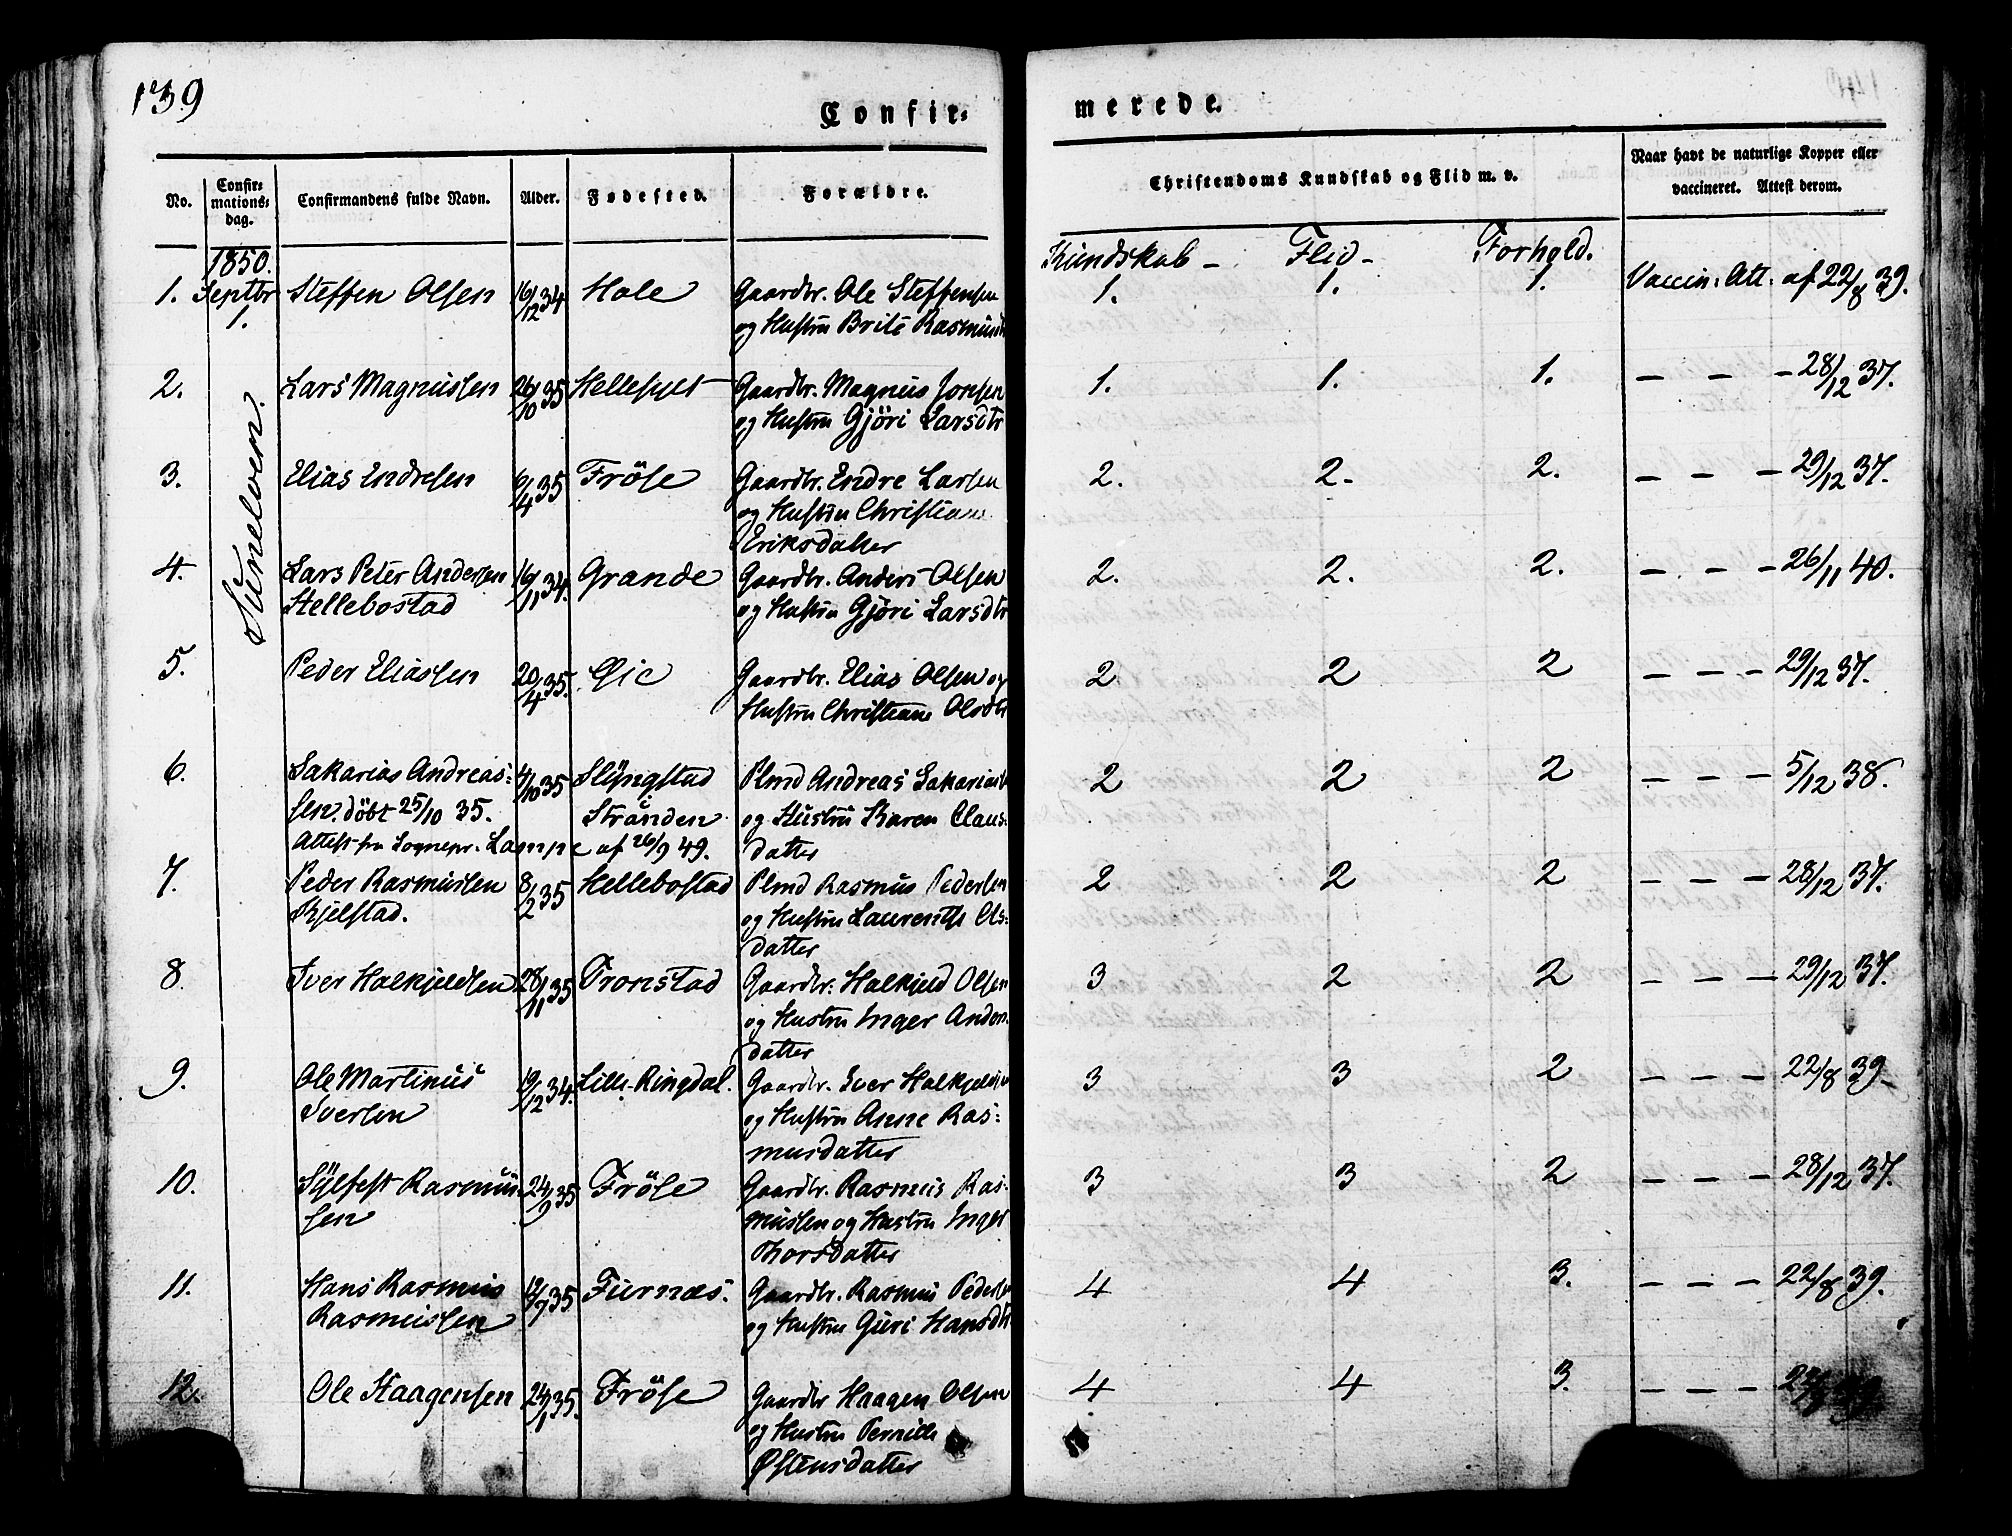 139
Confir-
merede.
No.
Confir-
mations-
dag.
Confirmandens fulde Navn.
Alder.
Fødested.
Forældre.
Christendoms Kundskab og Flid m. v.
Naar havt de naturlige Kopper eller
vaccineret. Attest derom.
Kundskab - Flid - Forhold.
1850.
Septbr
1.
Sunelven.
1. Steffen Olsen 16/12 34 Hole Gaardbr. Ole Steffensen 1. 1. 1. Vaccin. Att. af 22/8 39.
og Hustru Brite Rasmusdt
2. Lars Magnussen 26/10 35 Hellesylt Gaardbr. Magnus Jonsen 1. 1. 1. — — — 28/12 37.
og Hustru Gjöri Larsdtr
3. Elias Endresen 35 Fröse Gaardbr. Endre Larsen 2. 2. 2. — — — 29/12 37.
og Hustru Christiane
Eriksdatter
4. Lars Peter Andersen 16/11 34. Grande Gaardbr. Anders Olsen 2. 2. 2. — — — 26/11 40.
Hellebostad og Hustru Gjöri Larsdtr
5. Peder Eliassen 20/4 35. Gaardbr. Elias Olsen og 2 2 2 — — — 29/12 37.
Hustru Christiane Olsdtr
6. Sakarias Andreas= 4/10 35 Slyngstad Plmd Andreas Sakarias 2 2 2 — — — 5/12 38.
sen. döbt 25/10 35. i Stranden og Hustru Karen Claus-
Attest fra Sognepr. Lampe af 26/9 49. datter
7. Peder Rasmussen 8/2 35 Hellebostad Plmd Rasmus Pedersen 2 2 2 — — — 28/12 37.
Kjelstad. og Hustru Laurentse Ols-
datter
8. Iver Halkjeldsen 28/11 35 Tronstad Gaardbr. Halkjeld Olsen 3 2 2 — — — 29/12 37.
og Hustru Inger Anders
datter
9. Ole Martinus 19/12 34. Lille Ringdal. Gaardbr. Iver Halkjeldsen 3 3 2 — — — 22/8 39.
Iversen og Hustru Anne Ras=
musdatter
10. Sylfest Rasmus 24/9 35 Fröse Gaardbr. Rasmus Ras- 3 3 2 — — — 28/12 37.
sen mussen og Hustru Inger
Thorsdatter
11. Hans Rasmus 12/7 35 Furnæs. Gaardbr. Rasmus Pedersen 4 4 3. — — — 22/8 39.
Rasmussen og Hustru Guri Hansdtr
12. Ole Haagensen 24/1 35. Fröse Gaardbr Haagen Olsen 4 4 3. — — —
og Hustru Pernille
Østensdatter